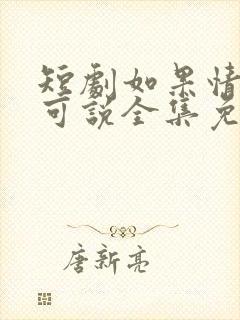 短劇如果情
可說全集免
唐新亮